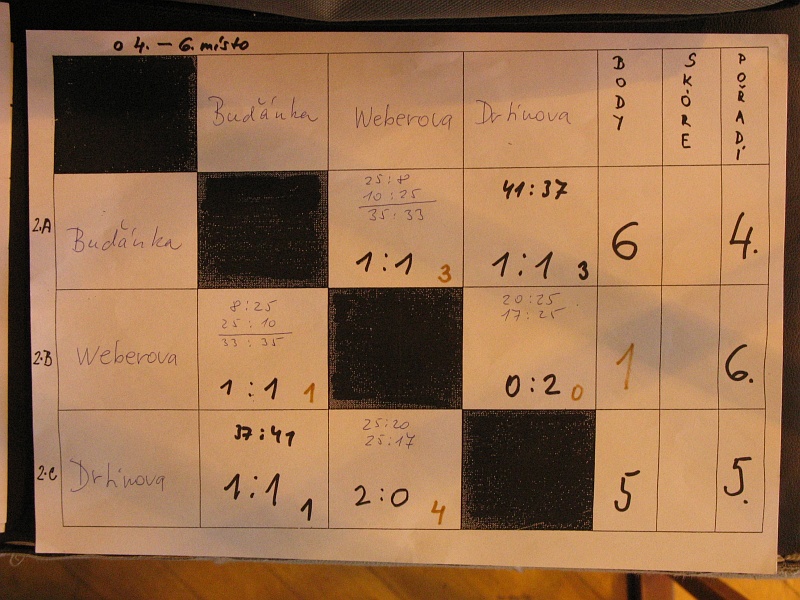 o 4. – 6. místo
Buďánka Weberova Drtinova BODY SKÓRE POŘADÍ
2.A Buďánka
25:8
10:25
35:33
1:1 3
41:37
1:1 3
6
4.
2.B Weberova
8:25
25:10
33:35
1:1 1
20:25
17:25
0:2 0
1
6.
2.C Drtinova
37:41
1:1 1
25:20
25:17
2:0 4
5
5.